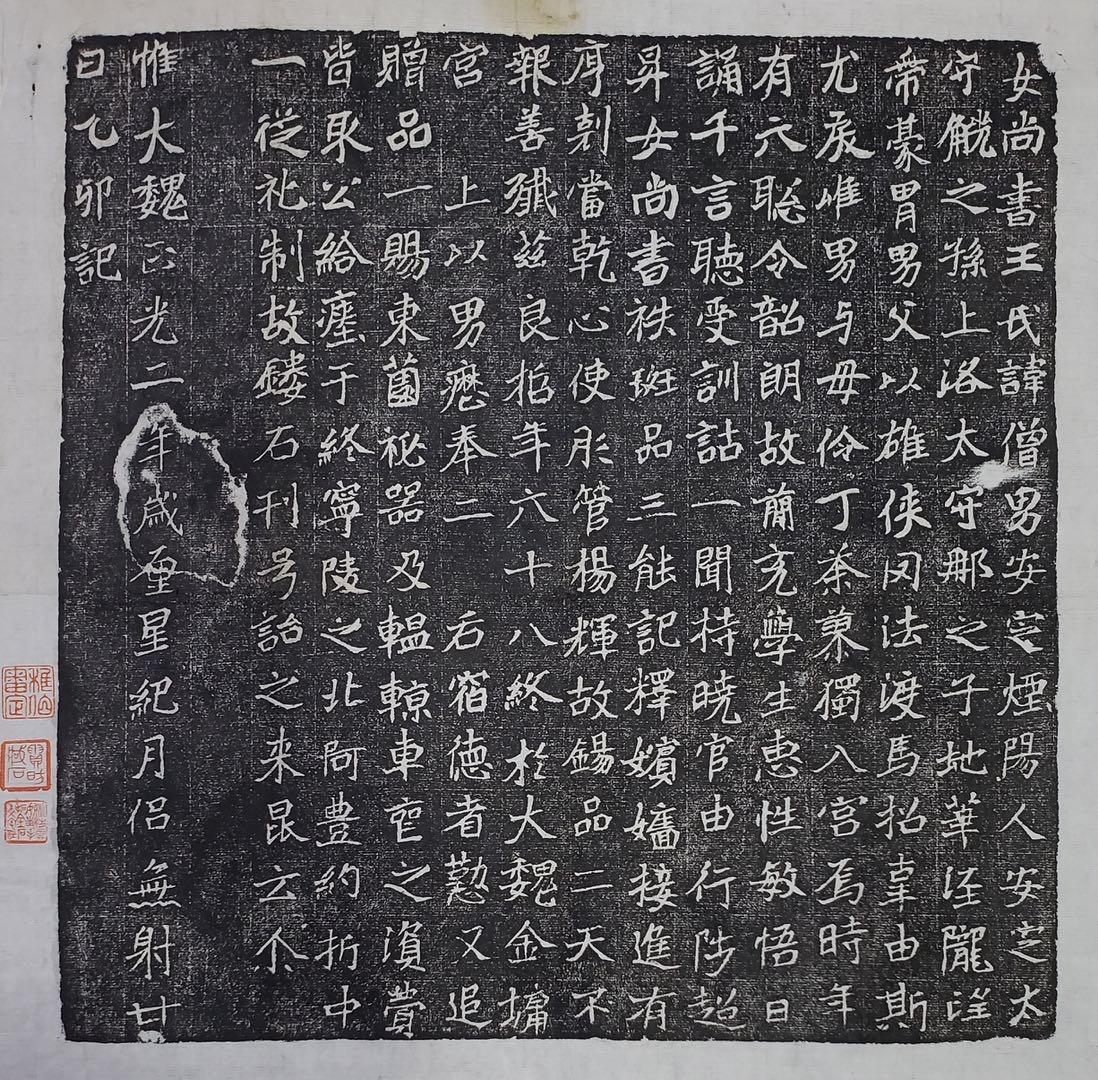 女尚書王氏諱僧男安定煙陽人安定太
守觥之孫上洛太守那之子地華涇隴望
帶豪胄男父以雄俠罔法渡馬招辜由斯
尤戾唯男与母伶丁荼蓼獨入宮焉時年
有六聡令韶朗故簡充學生惠性敏悟日
誦千言聽受訓詁一聞持曉官由行陟超
昇女尚書秩班品三能記釋嬪嬙接進有
序剋當乾心使彤管楊輝故錫品二天不
報善殲兹良哲年六十八終於大魏金墉
宮 上以男歷奉二 后宿德者懃又追
贈品一賜東薗祕器及轀輬車密之濱葬
皆取公給瘞于終寧陵之北阿豊約折中
一從礼制故鏤石刊号詒之来昆云尒
惟大魏正光二年歲在星紀月侣無射廿
日乙卯記